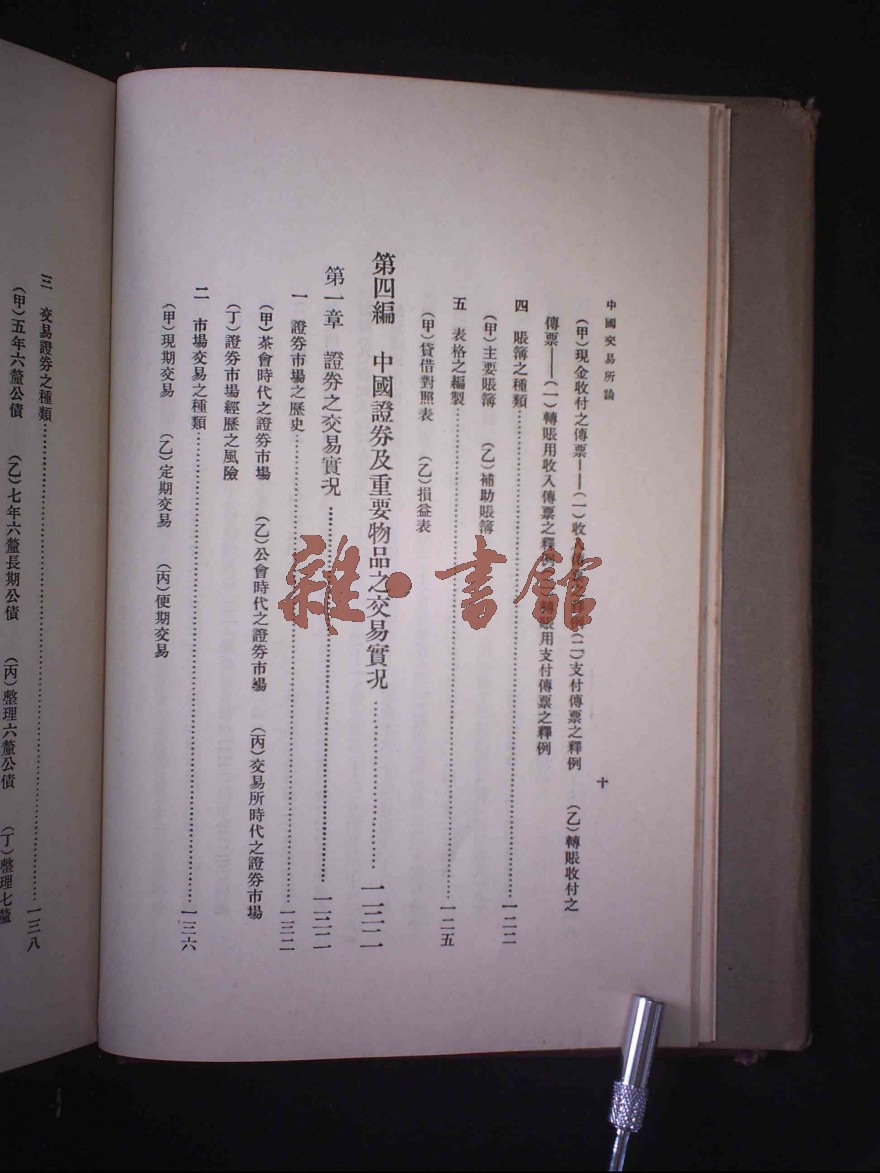 中國交易所論
十
(甲)現金收付之傳票——(一)收入傳票之釋例(二)支付傳票之釋例 (乙)轉賬收付之
傳票——(一)轉賬用收入傳票之釋例(二)轉賬用支付傳票之釋例
四 賬簿之種類……一二二
(甲)主要賬簿 (乙)補助賬簿
五 表格之編製……一二五
(甲)貸借對照表 (乙)損益表
第四編 中國證券及重要物品之交易實況……一三二
第一章 證券之交易實況……一三二
一 證券市場之歷史……一三二
(甲)茶會時代之證券市場 (乙)公會時代之證券市場 (丙)交易所時代之證券市場
(丁)證券市場經歷之風險
二 市場交易之種類……一三六
(甲)現期交易 (乙)定期交易 (丙)便期交易
三 交易證券之種類……一三八
(甲)五年六釐公債 (乙)七年六釐長期公債 (丙)整理六釐公債 (丁)整理七釐
雜·書館